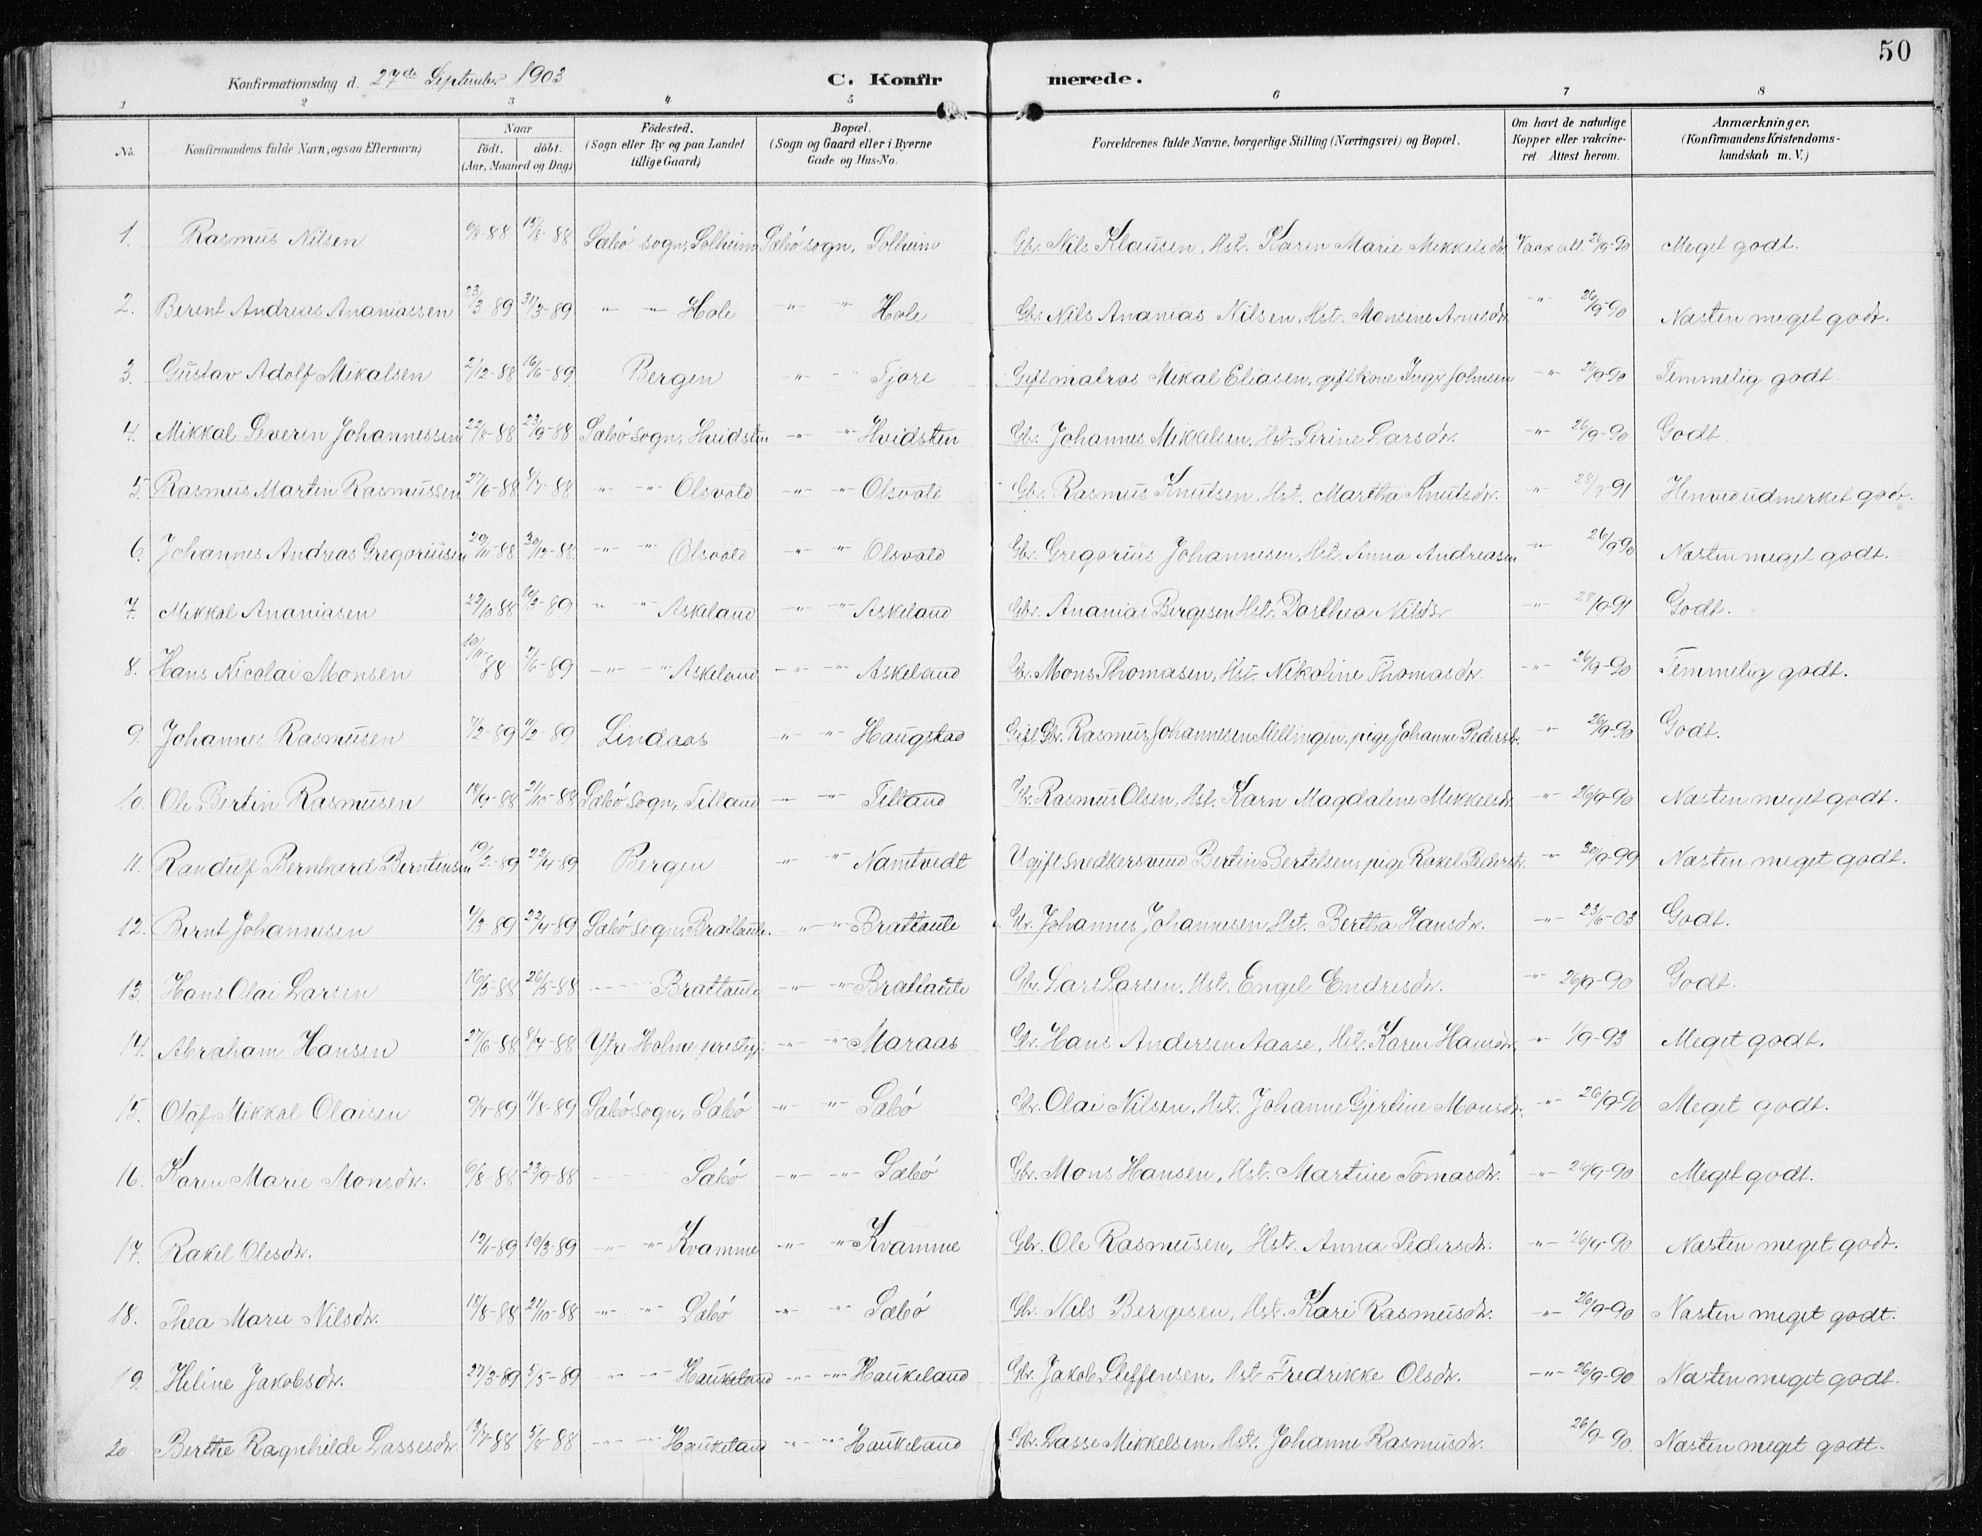 50
Konfirmationsdag d. 27de September 1903 C. Konfirmerede.
1 2 3 4 5 6 7 8
No. Konfirmandens fulde Navn, ogsaa Efternavn) Naar født. døbt. (Aar, Maaned og Dag) Fødested. (Sogn eller By og paa Landet tillige Gaard) Bopæl. (Sogn og Gaard eller i Byerne Gade og Hus-No. Forældrenes fulde Navne, borgerlige Stilling (Næringsvei) og Bopæl. Om havt de naturlige Kopper eller vakcineret Attest herom. Anmærkninger. (Konfirmandens Kristendomskundskab m. V.)
1. Rasmus Nilsen 6/8-88 15/8-88 Sæbø sogn, Solheim Sæbø sogn, Solheim Gbr. Nils Klausen, Hst. Karen Marie Mikkelsdr. Vacx att. 26/9-90 Meget godt.
2. Berent Andreas Ananiassen 23/3-89 31/3-89 " " Hole " " Hole Gbr. Nils Ananias Nilsen, Hst. Monsine Arnesdr. " 26/9-90 Næsten meget godt.
3. Gustav Adolf Mikalsen 2/12-88 16/6-89 Bergen " " Fjøre Gift matros Mikal Eliasen, gift kone Inger Johnsen " 26/9-90 Temmelig godt.
4. Mikkal Severin Johannessen 22/8-88 23/9-88 Sæbø sogn, Hvidsten " " Hvidsten Gbr. Johannes Mikkelsen, Hst. Serine Larsdr. " 26/9-90 Godt.
5. Rasmus Martin Rasmussen 27/6-88 8/7-88 " " Olsvold " " Olsvold Gbr. Rasmus Knutsen, Hst. Martha Knutsdr. " 28/9-91 Henved udmerket godt.
6. Johannes Andreas Gregoriusen 20/11-88 30/12-88 " " Olsvold " " Olsvold Gbr. Gregorius Johannesen, Hst. Anna Andreasen " 26/9 90 Næsten meget godt.
7. Mikkal Ananiasen 22/10-88 /3-89 " " Askeland " " Askeland Gbr. Ananias Bergesen Hst. Dorthea Nilsdr " 28/9-91 Godt.
8. Hans Nicolai Monsen /11 88 /6-89 " " Askeland " " Askeland Gbr. Mons Thomasen, Hst. Nikoline Thomasdr. " 26/9-90 Temmelig godt.
9. Johannes Rasmusen /2-89 /2-89 Lindaas " " Haugstad Gift Gbr. Rasmus Johannesen Mellingen, pige Johanne Pedersdr. " 26/9-90 Godt.
10. Ole Bertin Rasmusen /9-88 21/10-88 Sæbø sogn, Titland " " Titland Gbr. Rasmus Olsen, Hst. Karn Magdalene Mikkelsdr. " 26/9-90 Næsten meget godt.
11. Randulf Bernhard Berntensen 19/2-89 22/4-89 Bergen " " Namtvedt Ugift snedkersvend Bertin Bertelsen, pige Rakel Pedersdr. " 30/9-99 Næsten meget godt.
12. Bernt Johannesen /3-89 22/4-89 Sæbø sogn, Brattaule. " " Brattaule Gbr. Johannes Johannesen, Hst. Bertha Hansdr. " 23/6-03 Godt.
13. Hans Olai Larsen 16/5-88 26/5-88 " Brattaule " " Brattaule Gbr. Lars Larsen, Hst. Engel Endresdr. " 26/9-90 Godt.
14. Abraham Hansen 27/6-88 8/7-88 Ytre Holme prestegj. " " Maraas Gbr. Hans Andersen Aaase, Hst. Karen Hansdr. " 1/9-93 Meget godt.
15. Olaf Mikkal Olaisen 9/7-89 11/8-89 Sæbø sogn, Sæbø " " Sæbø Gbr. Olai Nilsen, Hst. Johanne Gjertine Monsdr. " 26/9-90 Meget godt.
16. Karen Marie Monsdr. 6/8-88 23/9-88 Sæbø " " Sæbø Gbr. Mons Hansen, Hst. Martine Tomasdr. " 26/9-90 Meget godt.
17. Rakel Olesdr. /1-89 10/3-89 " " Kvamme " " Kvamme Gbr. Ole Rasmusen, Hst. Anna Pedersdr. " 26/9-90 Næsten meget godt.
18. Thea Marie Nilsdr. /8-88 21/10-88 " " Sæbø " " Sæbø Gbr. Nils Bergesen, Hst. Kari Rasmusdr. " 26/9-90 Næsten meget godt.
19. Heline Jakobsdr. 27/3-89 5/5-89 " " Haukeland " " Haukeland Gbr. Jakob Steffensen, Hst. Fredrikke Olsdr. " 26/9-90 Næsten meget godt.
20 Berthe Ragnhilde Lassesdr. 13/7-88 5/8-88 " " Haukeland " " Haukeland Gbr. Lasse Mikkelsen, Hst. Johanne Rasmusdr. 26/9-90. Næsten meget godt.